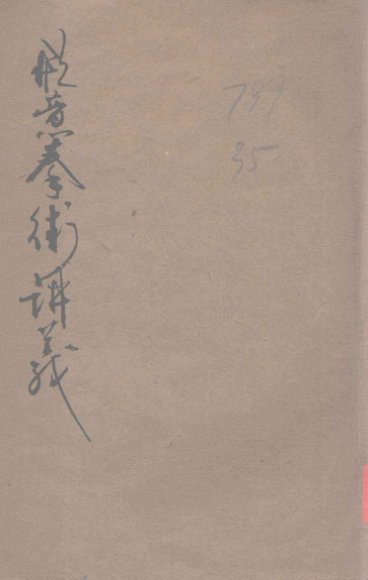 形意拳術講義
799
35